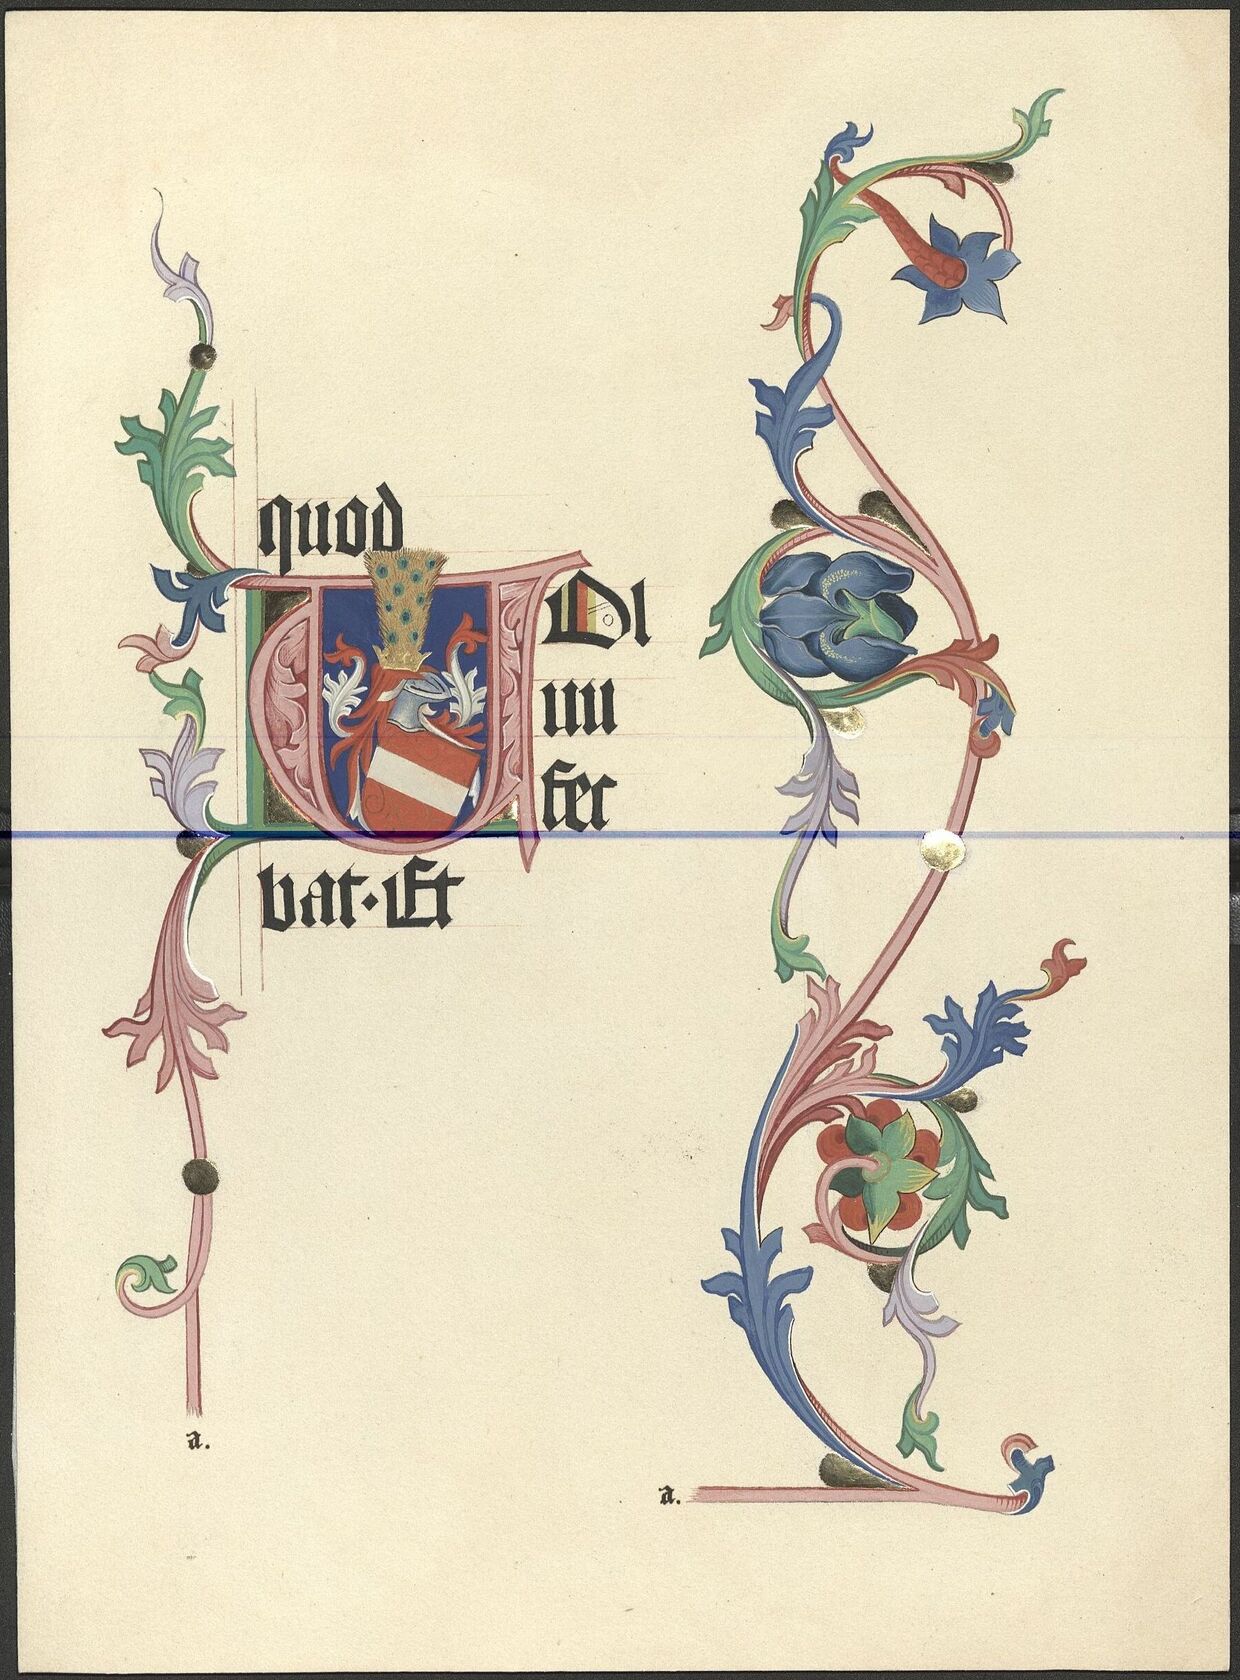 quod
U Di
uu
fer
bat · Et
a.
a.